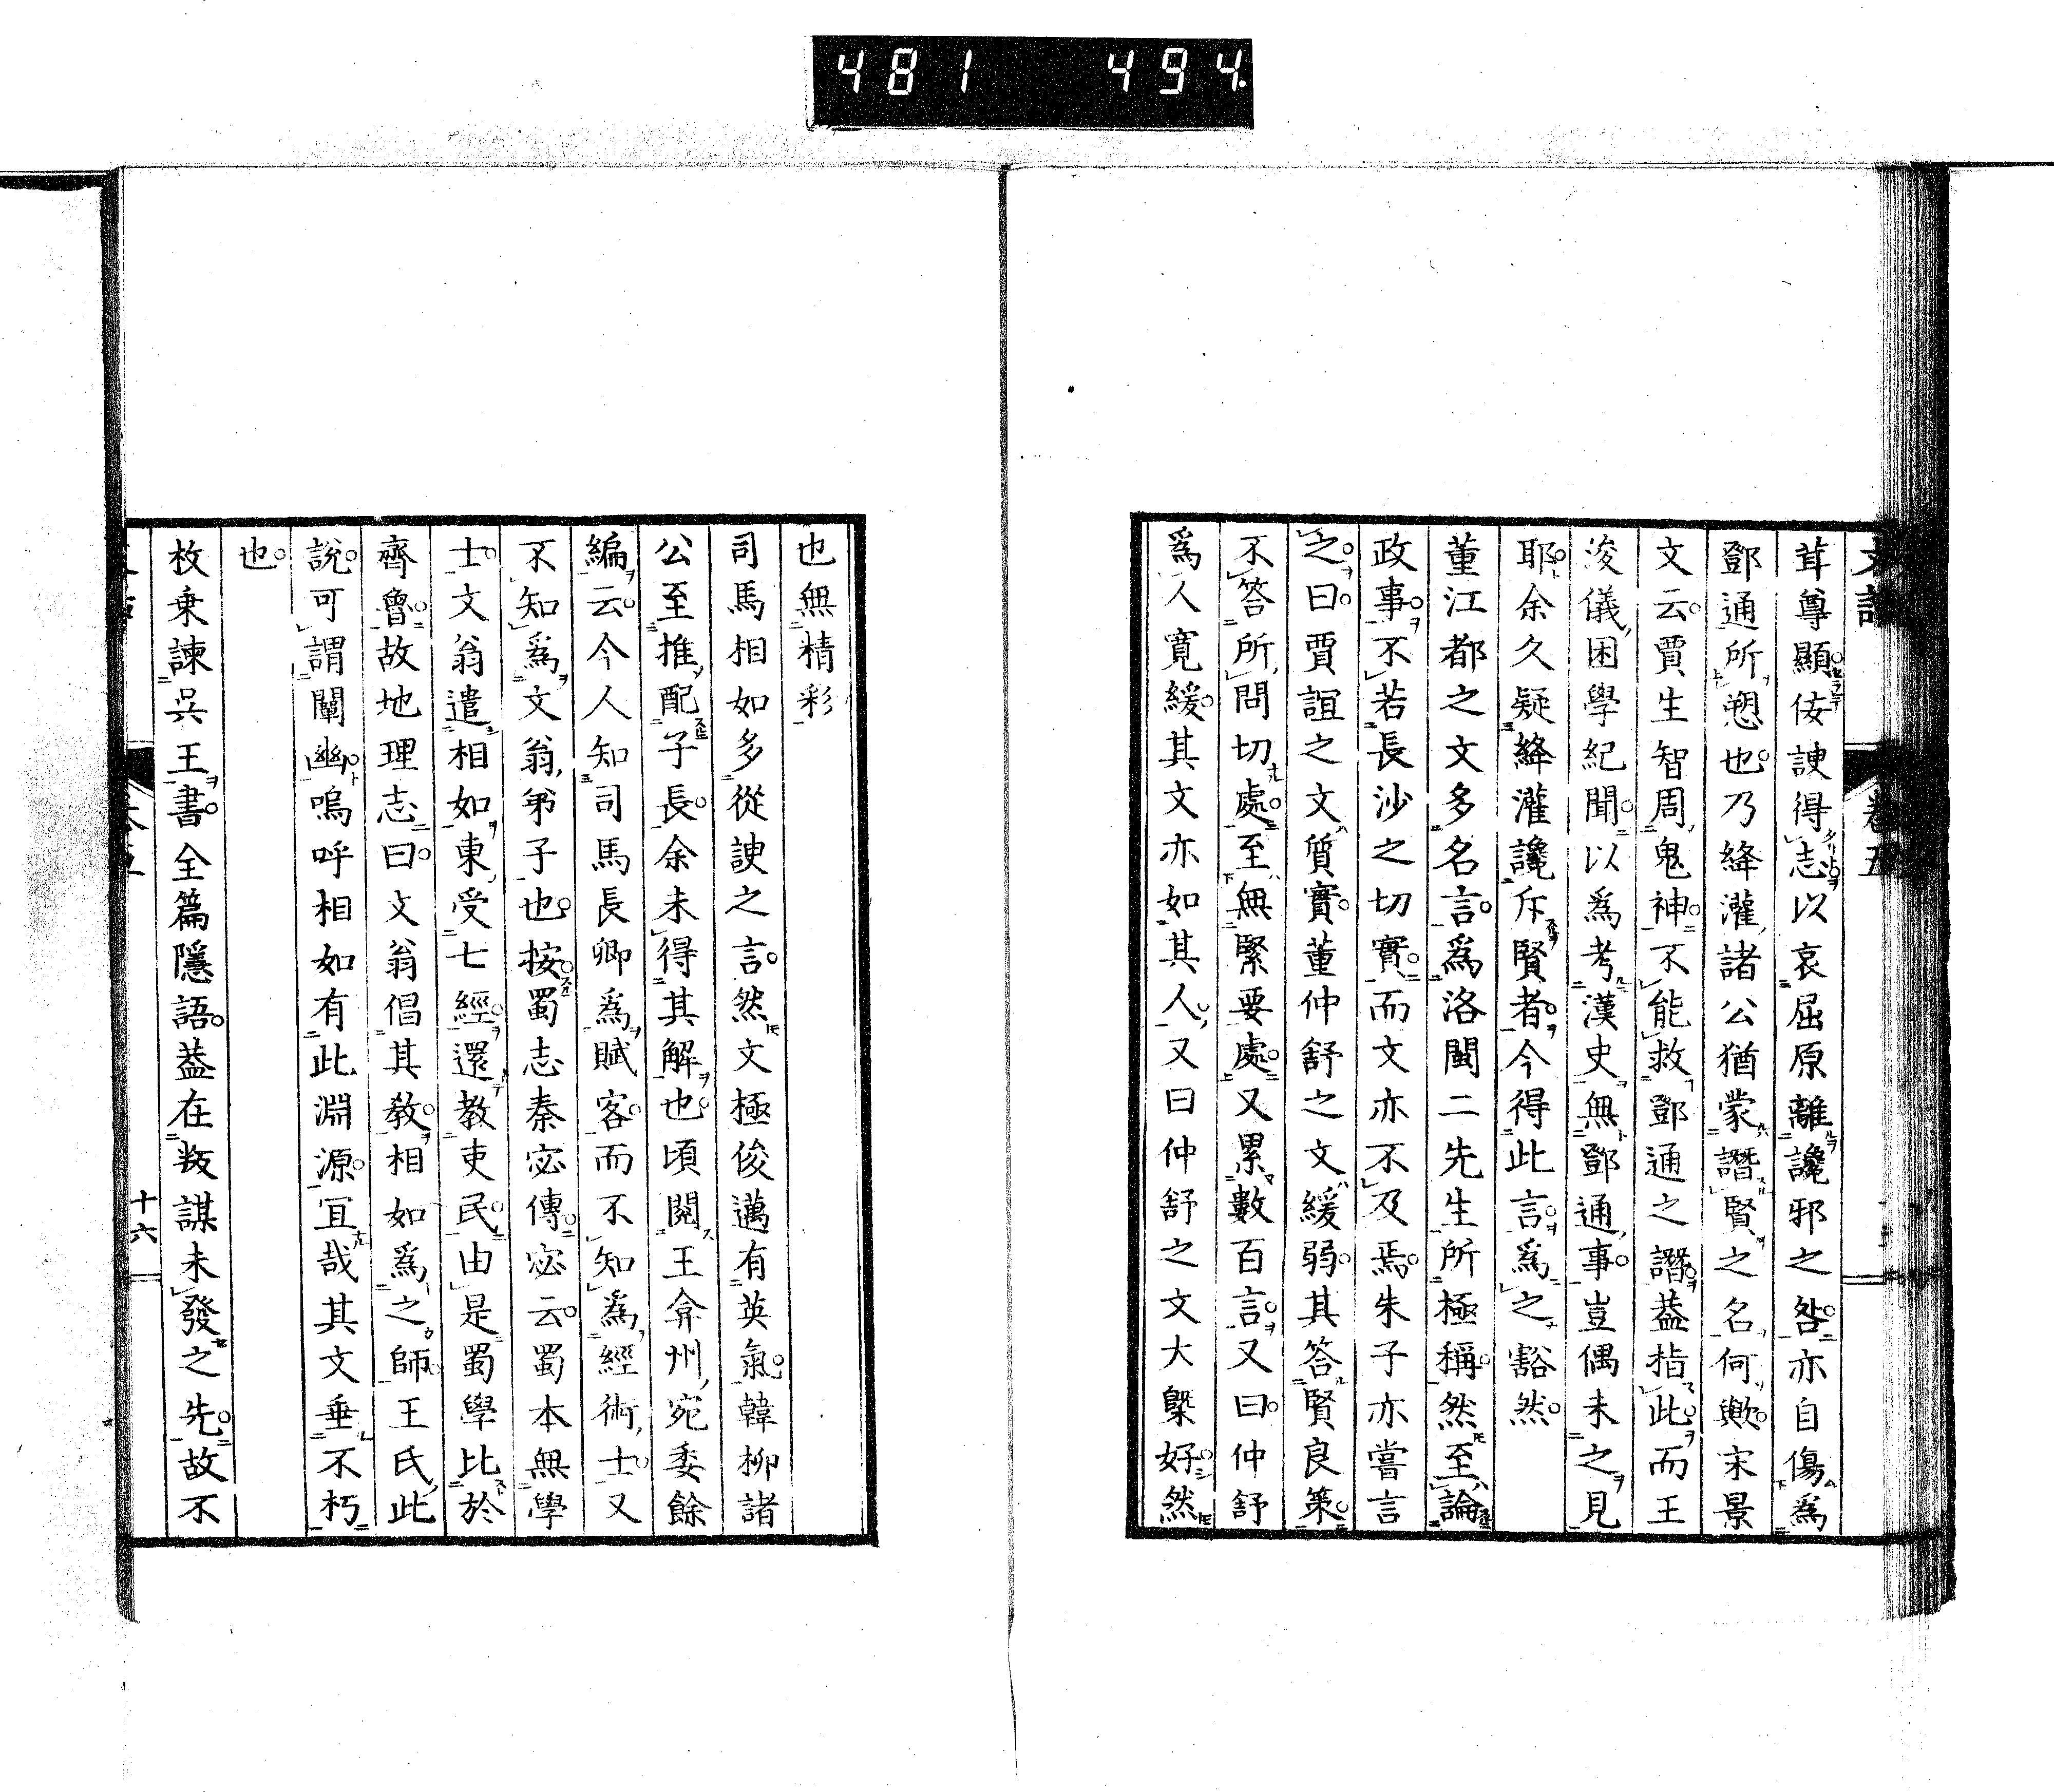 481 494
茸尊顯佞諛得志以哀屈原離讒邪之咎亦自傷爲
鄧通所愬也乃絳灌諸公猶蒙譖賢之名何歟宋景
文云賈生智周鬼神不能救鄧通之譖葢指此而王
浚儀困學紀聞以爲考漢史無鄧通事豈偶未之見
耶余久疑絳灌讒斥賢者今得此言爲之豁然
董江都之文多名言爲洛閩二先生所極稱然至論
政事不若長沙之切實而文亦不及焉朱子亦嘗言
之曰賈誼之文質實董仲舒之文緩弱其答賢良策
不答所問切處至無緊要處又累數百言又曰仲舒
爲人寛緩其文亦如其人又曰仲舒之文大槩好然
也無精彩
司馬相如多從諛之言然文極俊邁有英氣韓柳諸
公至推配子長余未得其解也頃閱王弇州宛委餘
編云今人知司馬長卿爲賦客而不知爲經術士又
不知爲文翁弟子也按蜀志秦宓傳宓云蜀本無學
士文翁遣相如東受七經還教吏民由是蜀學比於
齊魯故地理志曰文翁倡其教相如爲之師王氏此
說可謂闡幽嗚呼相如有此淵源宜哉其文垂不朽
也
枚乗諫吳王書全篇隱語葢在叛謀未發之先故不
十六